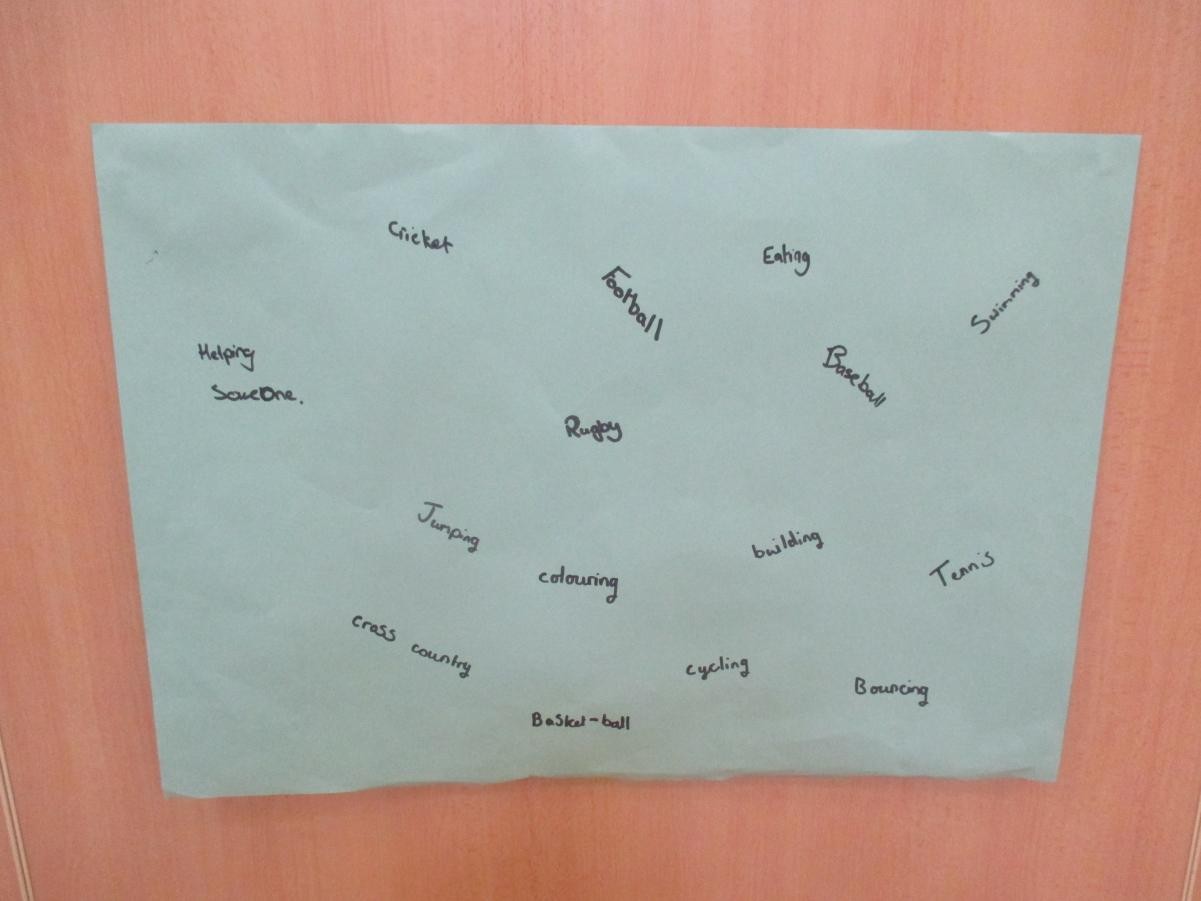 Cricket
Eating
Football
Swimming
Helping
Someone.
Baseball
Rugby
Jumping
building
Tennis
colouring
cross country
cycling
Bouncing
Basket-ball